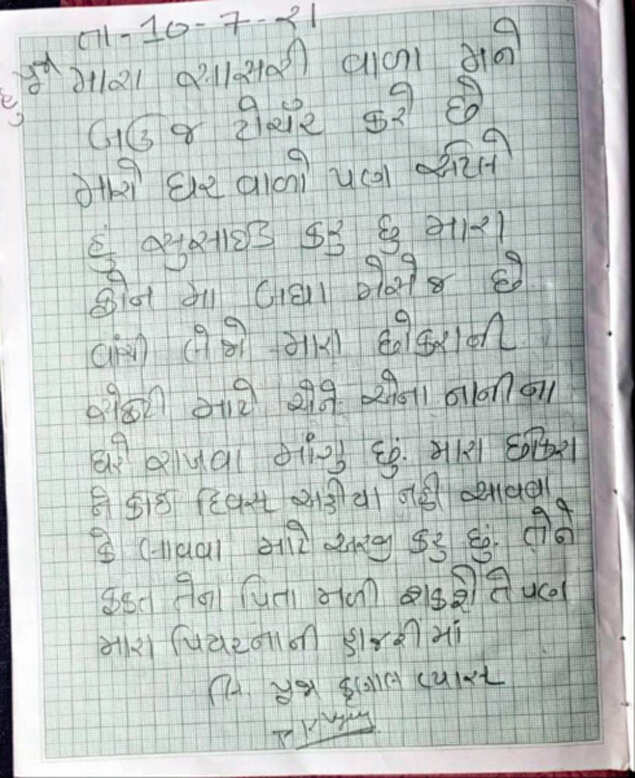 તા-10-7-21
હું મારા સાસરી વાળા મને
બહુ જ ટોર્ચર કરે છે
મારો ઘર વાળો પણ
હું સુસાઇડ કરું છું મારા
ફોન મા બધા મેસેજ છે
વાંચી લેજો મારા છોકરાની
સેફટી માટે એને એના નાનીના
ઘરે રાખવા માંગુ છું. મારા છોકરા
ને કોઇ દિવસ અહીયા નહી આવવા
કે લાવવા માટે અરજી કરું છું. તેને
ફક્ત તેના પિતા મળી શકશે તે પણ
મારા પિયરનાની હાજરીમાં
લિ. વ્યાસ